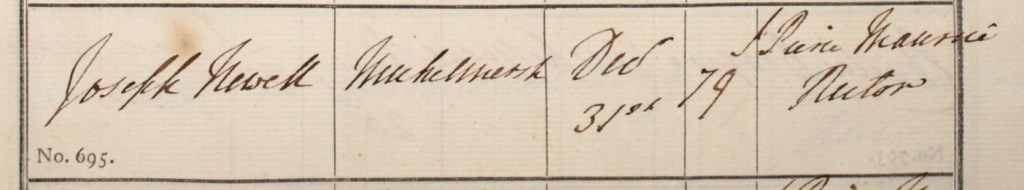 Joseph Newell
Michelmersh
Decr
31st
79
J Pierre Maurice
Rector
No. 695.